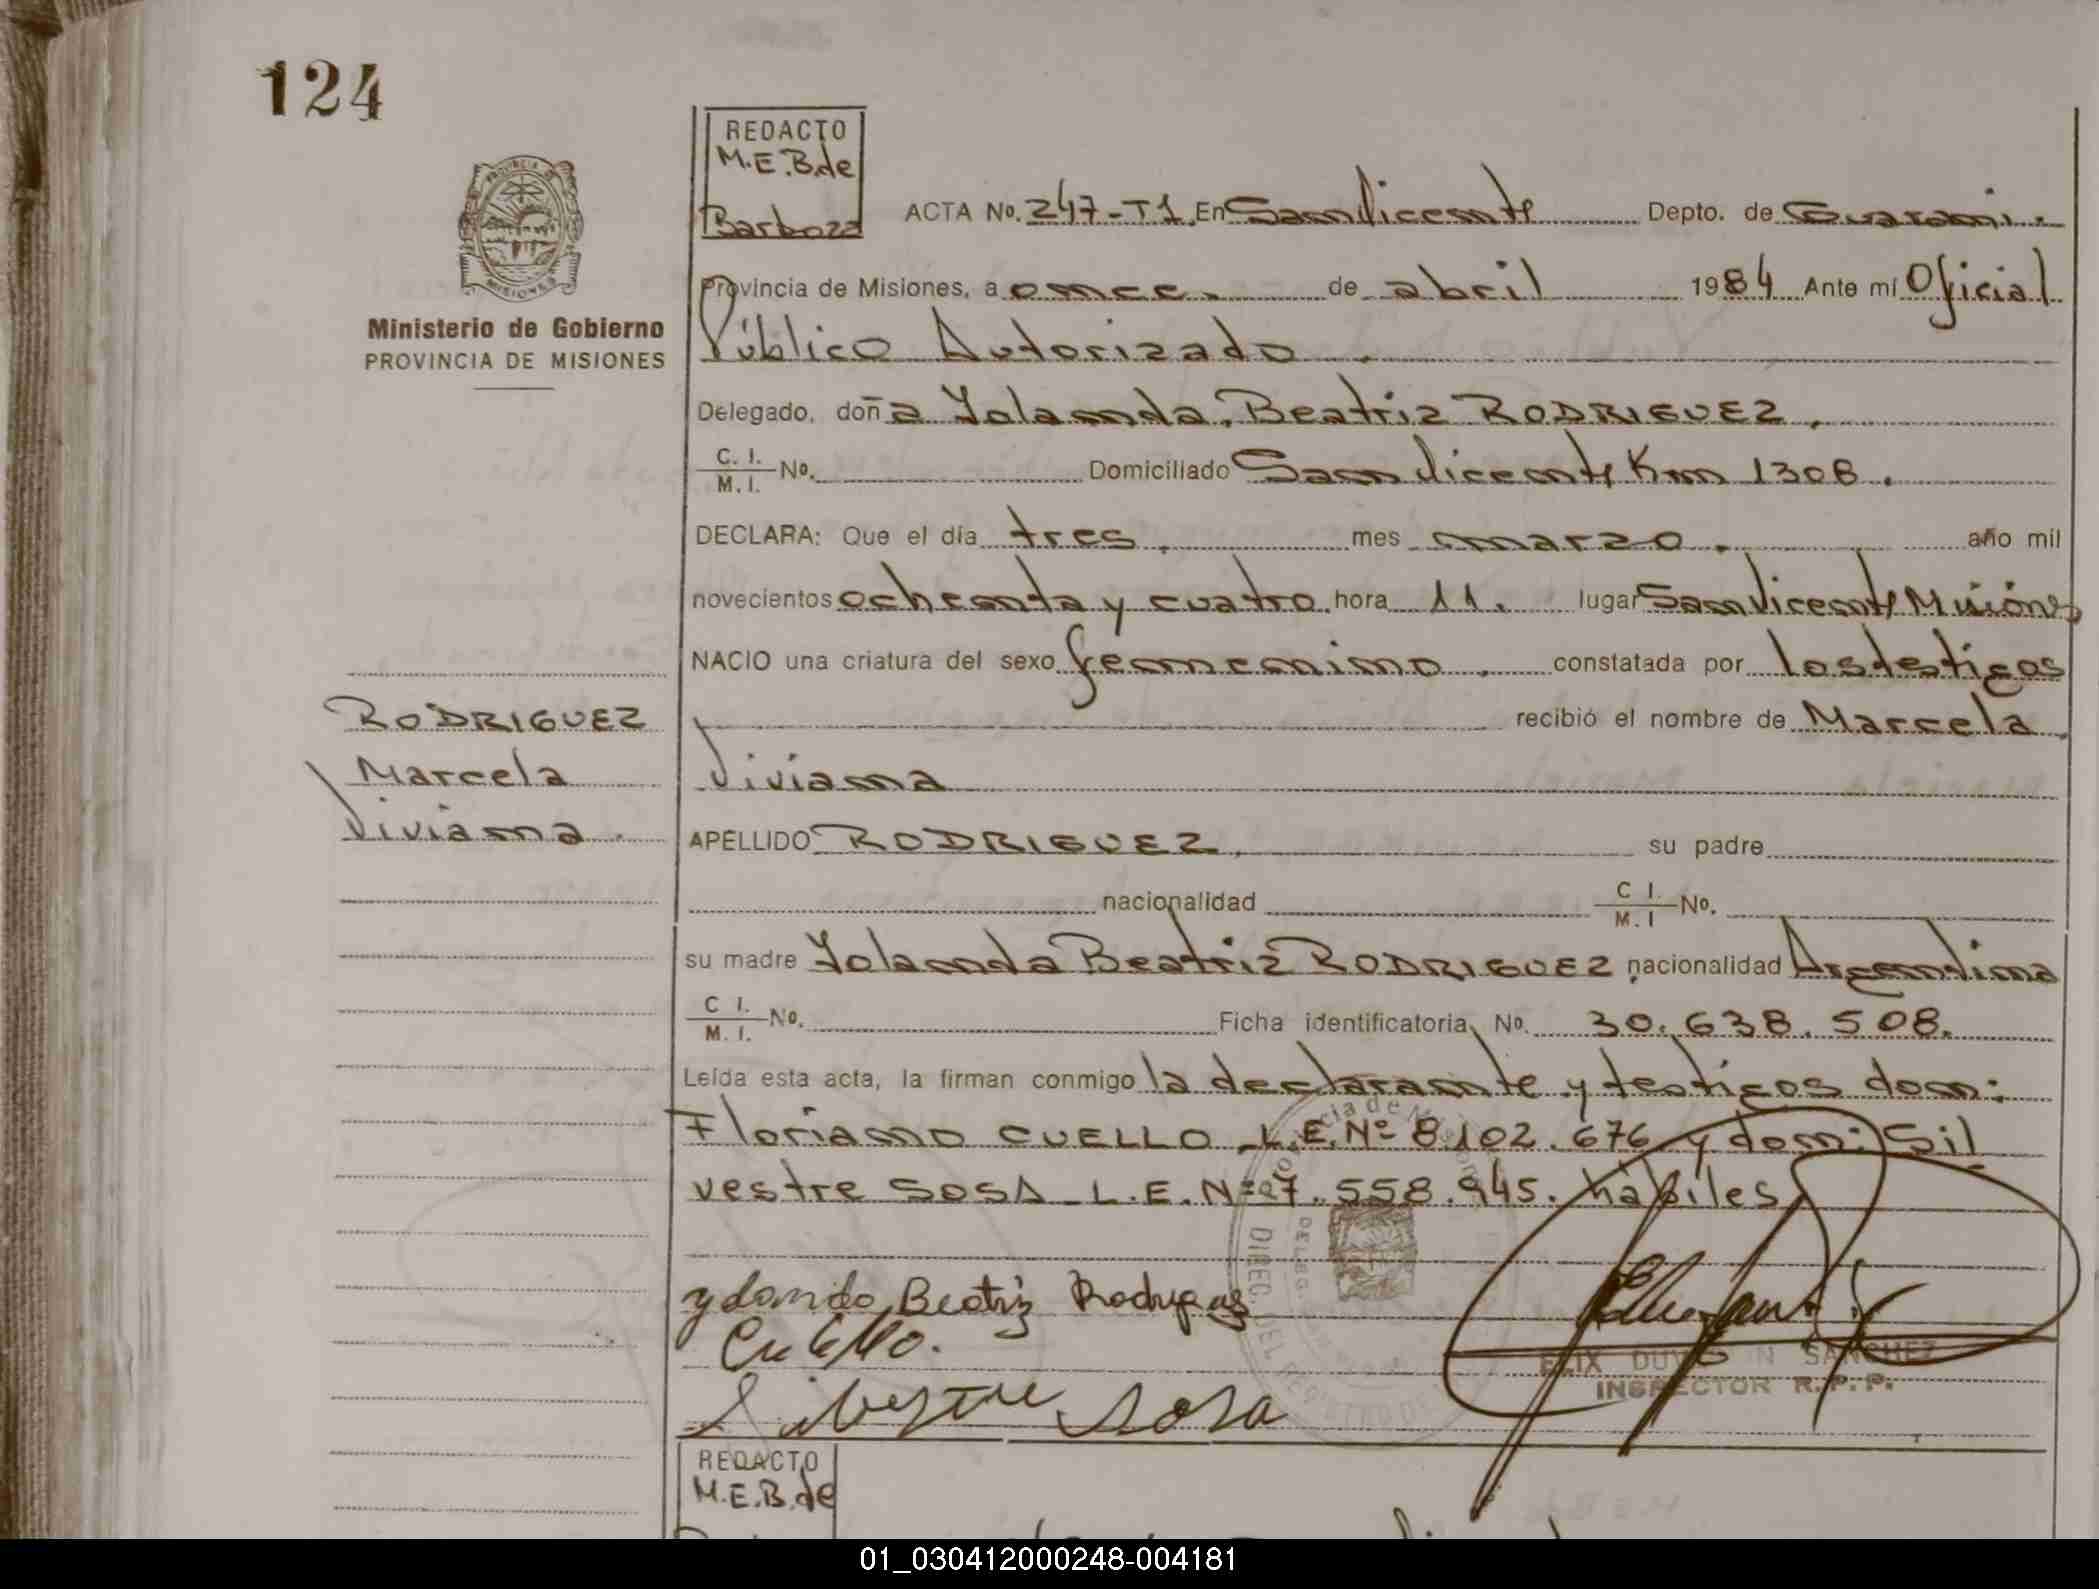 124
REDACTO
M.E.B.de
Barboza
ACTA No. 247-T1. En San Vicente Depto. de Guaraní.
Provincia de Misiones, a once. de abril 1984 Ante mí Oficial
Público Autorizado.
Ministerio de Gobierno
PROVINCIA DE MISIONES
Delegado, doña Yolanda, Beatriz RODRIGUEZ.
C. I.
M. I. No. Domiciliado San Vicente Km 1308.
DECLARA: Que el día tres. mes marzo. año mil
novecientos ochenta y cuatro. hora 11. lugar San Vicente Misiónes
NACIO una criatura del sexo femenino. constatada por los testigos
recibió el nombre de Marcela
Viviana
RODRIGUEZ
Marcela
Viviana.
APELLIDO RODRIGUEZ. su padre
nacionalidad C I. M. I No.
su madre Yolanda Beatriz RODRIGUEZ nacionalidad Argentina
C I.
M. I. No. Ficha identificatoria No. 30.638.508.
Leída esta acta, la firman conmigo la declarante y testigos don:
Floriano CUELLO_L.E.Nº 8.102.676 y don: Sil
vestre SOSA_L.E.Nº 7.558.945. habiles
yolanda Beatriz Rodriguez
Cuello.
Silvestre Sosa
ELIX DUV N SANCHEZ
INSPECTOR R.P.P.
REDACTO
M.E.B.de
01_030412000248-004181